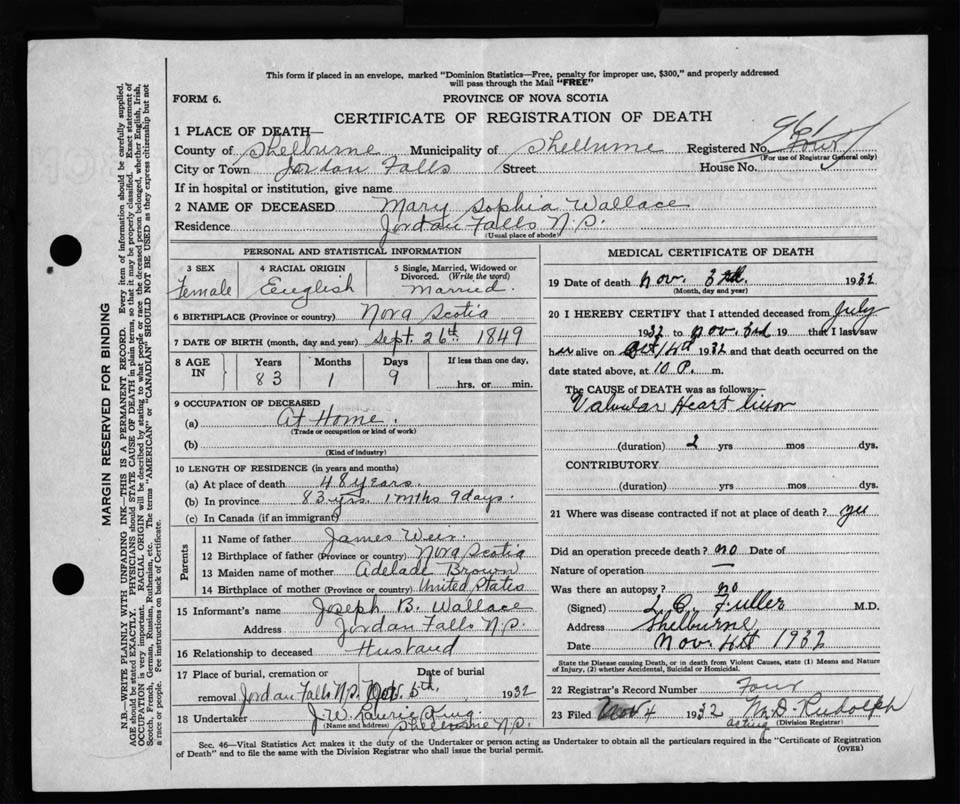 This form if placed in an envelope, marked "Dominion Statistics—Free, penalty for improper use, $300," and properly addressed
will pass through the Mail "FREE"
FORM 6.
PROVINCE OF NOVA SCOTIA
CERTIFICATE OF REGISTRATION OF DEATH
961
1 PLACE OF DEATH—
County of Shelburne Municipality of Shelburne Registered No. Four
(For use of Registrar General only)
City or Town Jordan Falls Street House No.
If in hospital or institution, give name
2 NAME OF DECEASED Mary Sophia Wallace
Residence Jordan Falls N.S.
(Usual place of abode)
PERSONAL AND STATISTICAL INFORMATION
3 SEX 4 RACIAL ORIGIN 5 Single, Married, Widowed or Divorced. (Write the word)
Female English Married.
6 BIRTHPLACE (Province or country) Nova Scotia
7 DATE OF BIRTH (month, day and year) Sept. 26th 1849
8 AGE IN Years Months Days If less than one day,
83 1 9 hrs. or min.
9 OCCUPATION OF DECEASED
(a) At Home.
(Trade or occupation or kind of work)
(b)
(Kind of industry)
10 LENGTH OF RESIDENCE (in years and months)
(a) At place of death 48 years.
(b) In province 83 yrs. 1 mths 9 days.
(c) In Canada (if an immigrant)
Parents
11 Name of father James Weir.
12 Birthplace of father (Province or country) Nova Scotia
13 Maiden name of mother Adelade Brown
14 Birthplace of mother (Province or country) United States
15 Informant's name Joseph B. Wallace
Address Jordan Falls N.S.
16 Relationship to deceased Husband
17 Place of burial, cremation or removal Jordan Falls N.S. Date of burial Nov. 5th. 1932
18 Undertaker J. W. Laurie King.
(Name and address) Shelburne N.S.
MEDICAL CERTIFICATE OF DEATH
19 Date of death Nov. 1932
(Month, day and year)
20 I HEREBY CERTIFY that I attended deceased from July
1932 to Nov. 3rd 19 that I last saw
her alive on 1932 and that death occurred on the
date stated above, at 10 P. m.
The CAUSE of DEATH was as follows:—
Valvular Heart
(duration) 2 yrs mos dys.
CONTRIBUTORY
(duration) yrs mos dys.
21 Where was disease contracted if not at place of death?
Did an operation precede death? no Date of
Nature of operation —
Was there an autopsy? no
(Signed) L. O. Fuller M.D.
Address Shelburne
Date Nov. 4th 1932
State the Disease causing Death, or in death from Violent Causes, state (1) Means and Nature
of Injury, (2) whether Accidental, Suicidal or Homicidal.
22 Registrar's Record Number Four
23 Filed Nov 4 1932 M.D. Rudolph
acting (Division Registrar)
Sec. 46—Vital Statistics Act makes it the duty of the Undertaker or person acting as Undertaker to obtain all the particulars required in the "Certificate of Registration
of Death" and to file the same with the Division Registrar who shall issue the burial permit.
(OVER)
MARGIN RESERVED FOR BINDING
N.B.—WRITE PLAINLY WITH UNFADING INK—THIS IS A PERMANENT RECORD. Every item of information should be carefully supplied.
AGE should be stated EXACTLY. PHYSICIANS should STATE CAUSE OF DEATH in plain terms, so that it may be properly classified. Exact statement of
OCCUPATION is very important. RACIAL ORIGIN will be described by stating to what people or race the deceased person belonged, whether English, Irish,
Scotch, French, German, Russian, Ruthenian, etc. The terms "AMERICAN" or "CANADIAN" SHOULD NOT BE USED as they express citizenship but not
a race or people. See instructions on back of Certificate.